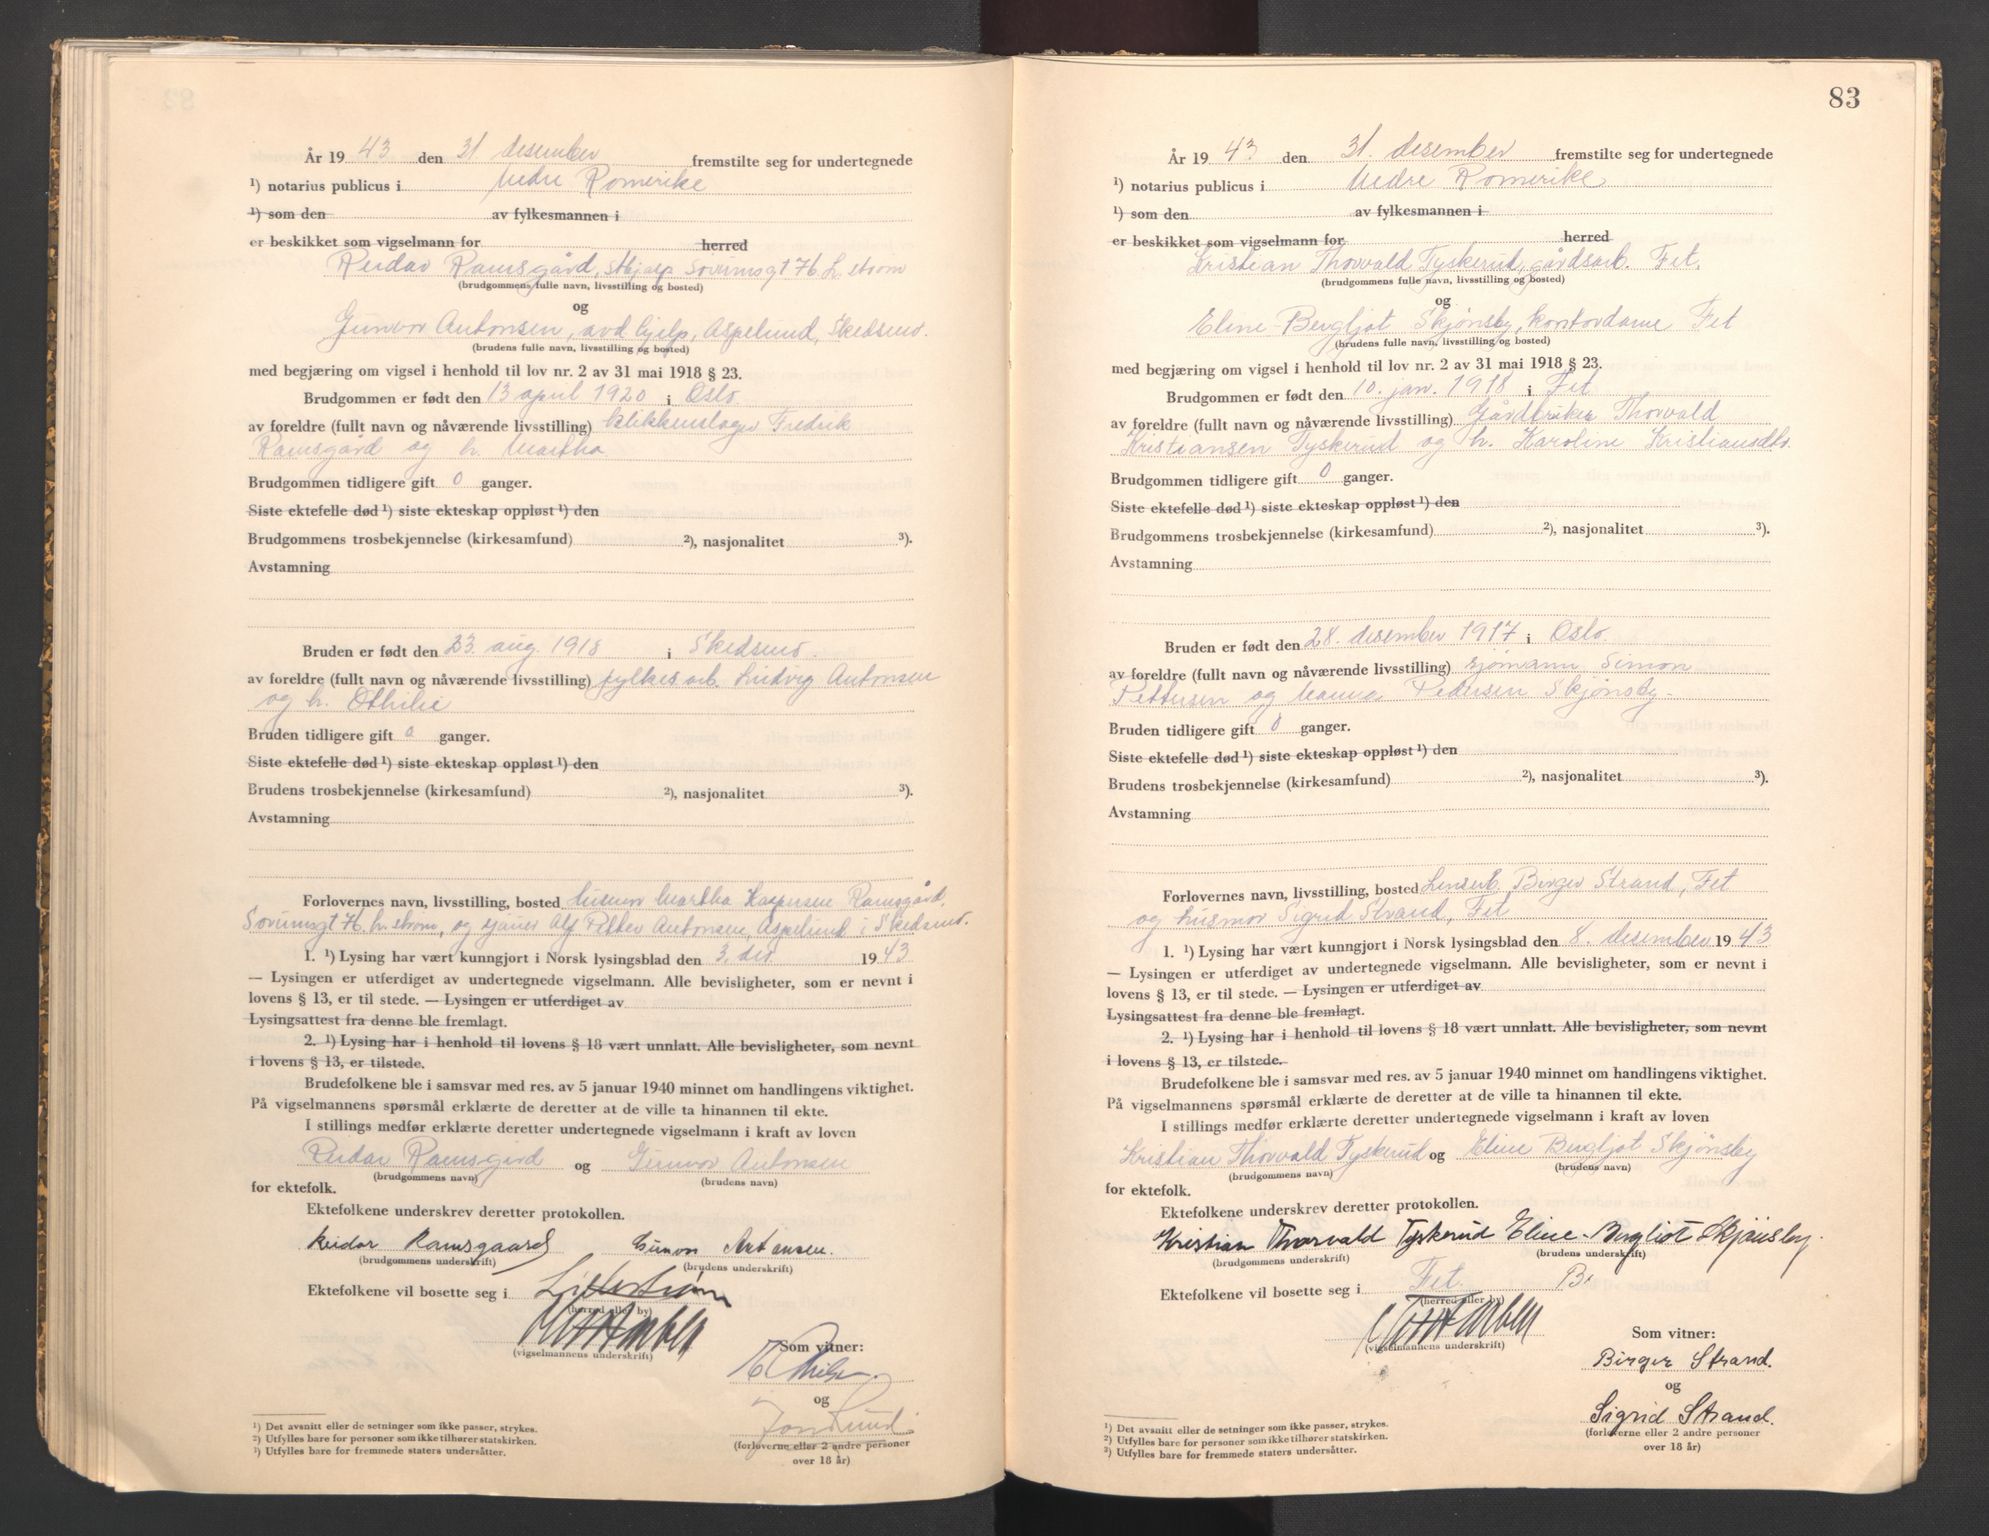 År 19 43 den 31 desember fremstilte seg for undertegnede
¹) notarius publicus i Nedre Romerike
¹) som den av fylkesmannen i
er beskikket som vigselmann for herred
Reidar Ramsgård, Sørumsgt 76. L.strøm
(brudgommens fulle navn, livsstilling og bosted)
og
Gunvor Antonsen, avd. hjelp, Aspelund, Skedsmo.
(brudens fulle navn, livsstilling og bosted)
med begjæring om vigsel i henhold til lov nr. 2 av 31 mai 1918 § 23.
Brudgommen er født den 13 april 1920 i Oslo
av foreldre (fullt navn og nåværende livsstilling) blikkenslager Fredrik
Ramsgård og h. Martha
Brudgommen tidligere gift 0 ganger.
Siste ektefelle død ¹) siste ekteskap oppløst ¹) den
Brudgommens trosbekjennelse (kirkesamfund) ²), nasjonalitet ³).
Avstamning
Bruden er født den 23. aug. 1918 i Skedsmo.
av foreldre (fullt navn og nåværende livsstilling) fylkesarb. Ludvig Antonsen
og h. Othilie
Bruden tidligere gift 0 ganger.
Siste ektefelle død ¹) siste ekteskap oppløst ¹) den
Brudens trosbekjennelse (kirkesamfund) ²), nasjonalitet ³).
Avstamning
Forlovernes navn, livsstilling, bosted husmor Martha Kaspersen Ramsgård,
Sørumsgt 76. L.strøm, og sjauer Alf Petter Antonsen, Aspelund i Skedsmo.
1. ¹) Lysing har vært kunngjort i Norsk lysingsblad den 3. des. 19 43
— Lysingen er utferdiget av undertegnede vigselmann. Alle bevisligheter, som er nevnt i
lovens § 13, er til stede. — Lysingen er utferdiget av
Lysingsattest fra denne ble fremlagt.
2. ¹) Lysing har i henhold til lovens § 18 vært unnlatt. Alle bevisligheter, som nevnt
i lovens § 13, er tilstede.
Brudefolkene ble i samsvar med res. av 5 januar 1940 minnet om handlingens viktighet.
På vigselmannens spørsmål erklærte de deretter at de ville ta hinannen til ekte.
I stillings medfør erklærte deretter undertegnede vigselmann i kraft av loven
Reidar Ramsgård og Gunvor Antonsen
(brudgommens navn) (brudens navn)
for ektefolk.
Ektefolkene underskrev deretter protokollen.
Reidar Ramsgaard Gunvor Antonsen.
(brudgommens underskrift) (brudens underskrift)
Ektefolkene vil bosette seg i Lillestrøm
(herred eller by)
(vigselmannens underskrift)
Som vitner:
og
Jon Lund
(forloverne eller 2 andre personer
over 18 år)
¹) Det avsnitt eller de setninger som ikke passer, strykes.
²) Utfylles bare for personer som ikke tilhører statskirken.
³) Utfylles bare for fremmede staters undersåtter.
83
År 19 43 den 31. desember fremstilte seg for undertegnede
¹) notarius publicus i Nedre Romerike
¹) som den av fylkesmannen i
er beskikket som vigselmann for herred
Kristian Thorvald Tyskerud, gårdsarb. Fet.
(brudgommens fulle navn, livsstilling og bosted)
og
Eline-Bergljot Skjønsby, kontordame Fet
(brudens fulle navn, livsstilling og bosted)
med begjæring om vigsel i henhold til lov nr. 2 av 31 mai 1918 § 23.
Brudgommen er født den 10. jan. 1918 i Fet
av foreldre (fullt navn og nåværende livsstilling) Gårdbruker Thorvald
Kristiansen Tyskerud og h. Karoline Kristiansdtr.
Brudgommen tidligere gift 0 ganger.
Siste ektefelle død ¹) siste ekteskap oppløst ¹) den
Brudgommens trosbekjennelse (kirkesamfund) ²), nasjonalitet ³).
Avstamning
Bruden er født den 28. desember 1917 i Oslo.
av foreldre (fullt navn og nåværende livsstilling) sjømann Simon
Pettersen og Pedersen Skjønsby-
Bruden tidligere gift 0 ganger.
Siste ektefelle død ¹) siste ekteskap oppløst ¹) den
Brudens trosbekjennelse (kirkesamfund) ²), nasjonalitet ³).
Avstamning
Forlovernes navn, livsstilling, bosted Lensearb. Birger Strand, Fet
og husmor Sigrid Strand, Fet
1. ¹) Lysing har vært kunngjort i Norsk lysingsblad den 8. desember 19 43
— Lysingen er utferdiget av undertegnede vigselmann. Alle bevisligheter, som er nevnt i
lovens § 13, er til stede. — Lysingen er utferdiget av
Lysingsattest fra denne ble fremlagt.
2. ¹) Lysing har i henhold til lovens § 18 vært unnlatt. Alle bevisligheter, som nevnt
i lovens § 13, er tilstede.
Brudefolkene ble i samsvar med res. av 5 januar 1940 minnet om handlingens viktighet.
På vigselmannens spørsmål erklærte de deretter at de ville ta hinannen til ekte.
I stillings medfør erklærte deretter undertegnede vigselmann i kraft av loven
Kristian Thorvald Tyskerud og Eline Bergljot Skjønsby
(brudgommens navn) (brudens navn)
for ektefolk.
Ektefolkene underskrev deretter protokollen.
Kristian Thorvald Tyskerud Eline-Bergliot Skjønsby.
(brudgommens underskrift) (brudens underskrift)
Ektefolkene vil bosette seg i Fet.
(herred eller by)
(vigselmannens underskrift)
Som vitner:
Birger Strand.
og
Sigrid Strand.
(forloverne eller 2 andre personer
over 18 år)
¹) Det avsnitt eller de setninger som ikke passer, strykes.
²) Utfylles bare for personer som ikke tilhører statskirken.
³) Utfylles bare for fremmede staters undersåtter.